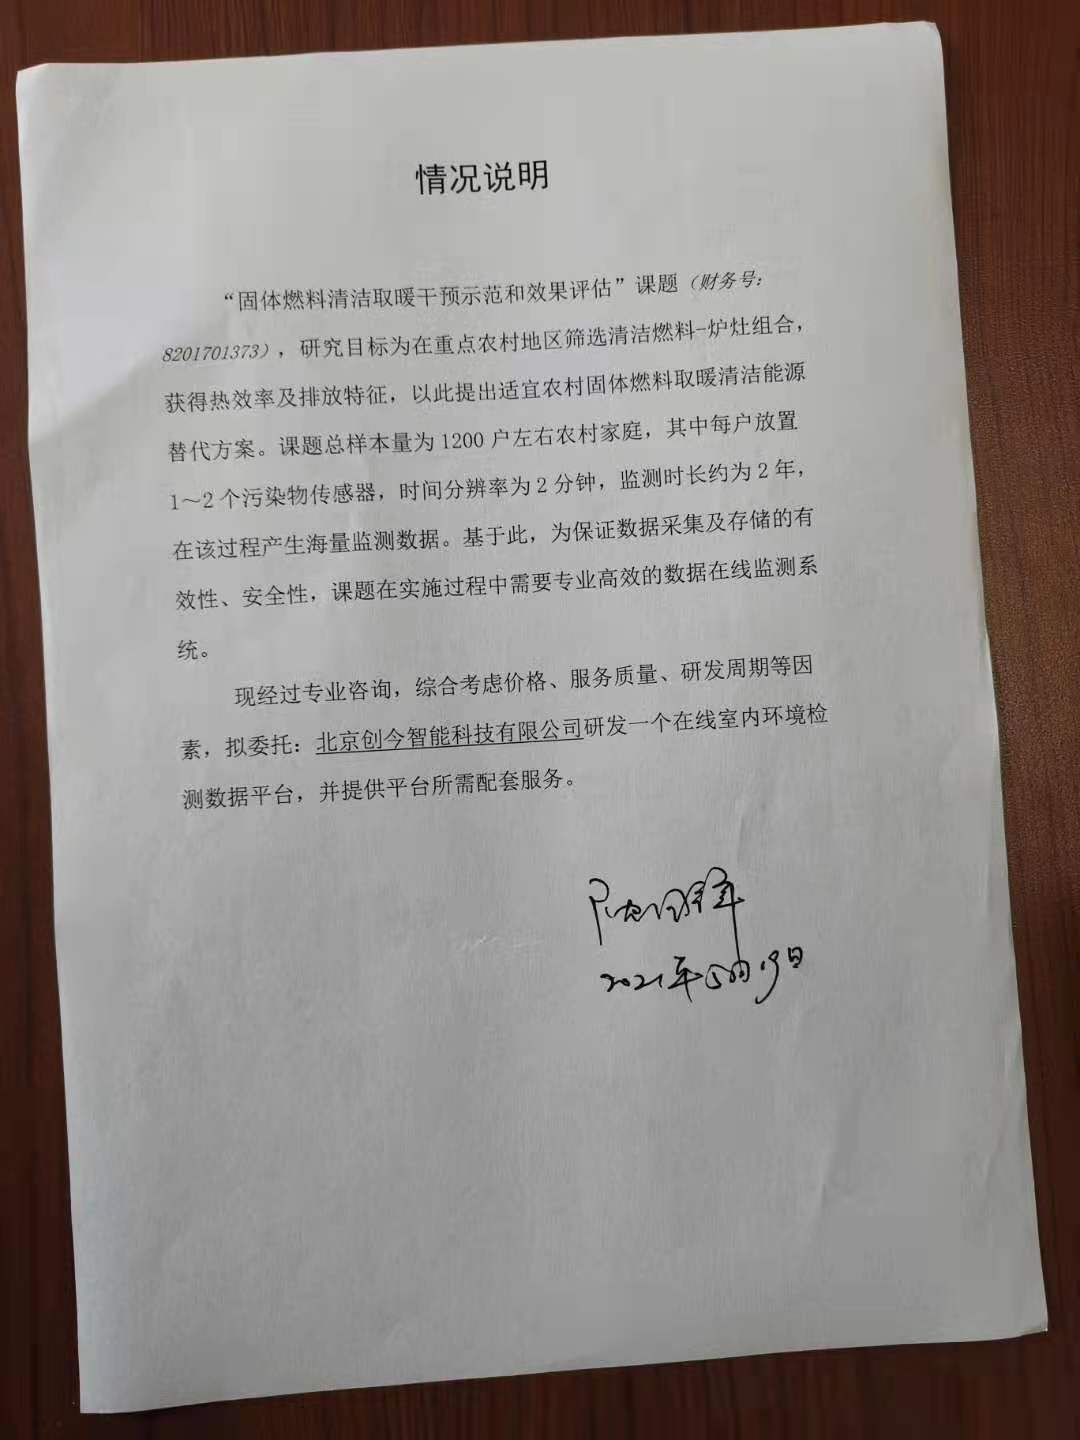 情况说明
“固体燃料清洁取暖干预示范和效果评估”课题（财务号：
8201701373），研究目标为在重点农村地区筛选清洁燃料-炉灶组合，
获得热效率及排放特征，以此提出适宜农村固体燃料取暖清洁能源
替代方案。课题总样本量为1200户左右农村家庭，其中每户放置
1～2个污染物传感器，时间分辨率为2分钟，监测时长约为2年，
在该过程产生海量监测数据。基于此，为保证数据采集及存储的有
效性、安全性，课题在实施过程中需要专业高效的数据在线监测系
统。
现经过专业咨询，综合考虑价格、服务质量、研发周期等因
素，拟委托：北京创今智能科技有限公司研发一个在线室内环境检
测数据平台，并提供平台所需配套服务。
2021年5月19日